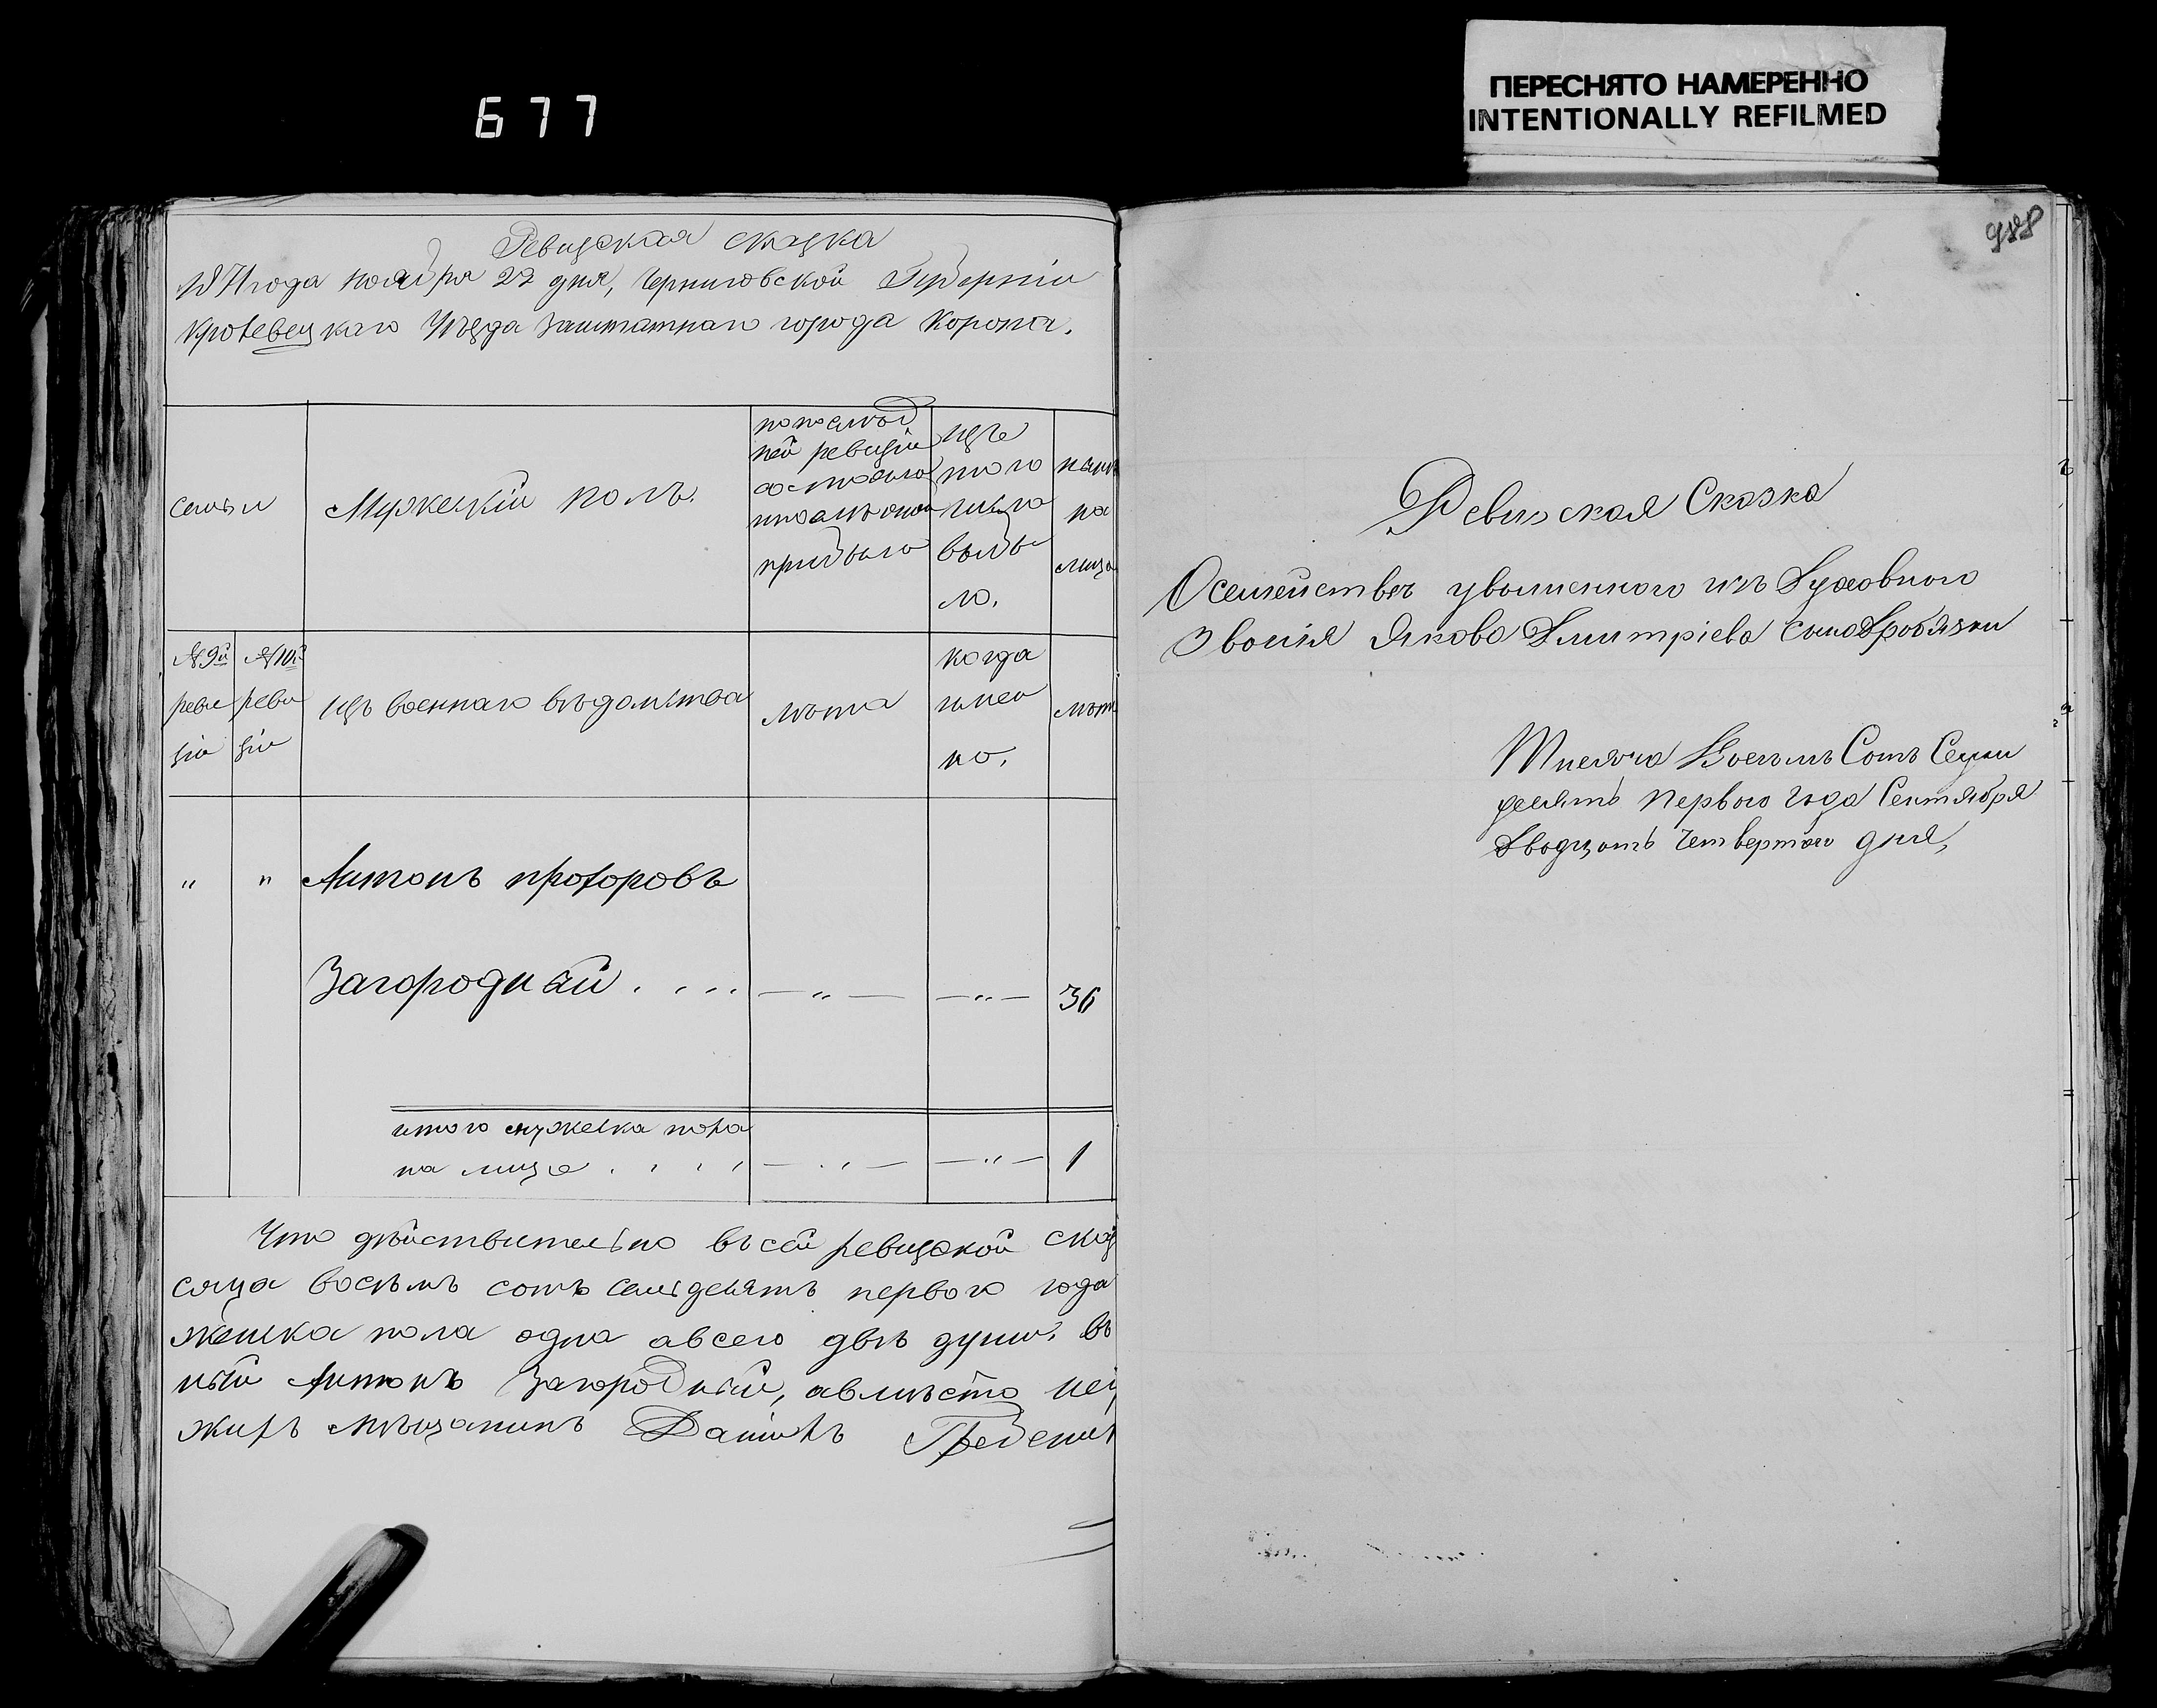 677
ПЕРЕСНЯТО НАМЕРЕННО
INTENTIONALLY REFILMED
Ревизская сказка
1871 года ноября 22 дня, Черниговской Губерніи
Кролевецкаго Уѣзда Заштатнаго города Коропа.
семьи
Мужескій полъ.
по послѣд
ней ревизіи
состояло
и послѣ оной
прибыло
изъ
того
числа
выбы
ло.
нынѣ
на
лице
№ 9й
реви
зіи
№ 10й
реви
зіи
изъ военнаго вѣдомства
лѣта
когда
имен
но.
лѣт
" " Антонъ прохоровъ
Загородній . . . . — " — — " — 36
итого мужеска пола
на лице . . . . — " — — " — 1
Что дѣйствительно въ сей ревизской сказ
сяча восемъ сотъ семьдесятъ первого года
женска пола одна а всего двѣ души. въ
ный Антонъ Загородный, а вмѣсто не
жиръ мѣщанинъ Данилъ Гребен
Ревизская Сказка
О семействѣ уволенного изъ Духовного
Званія Якова Дмитріева сына Дробязки
Тисяча Восемъ Сотъ Семи
десятъ Первого Года Сентября
Двадцать Четвертого дня,